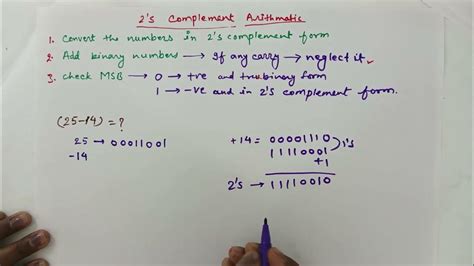 2's Complement Arithmatic
1. Convert the numbers in 2's complement form
2. Add binary numbers → If any carry → neglect it.
3. check MSB → 0 → +ve and truebinary form
1 → -ve and in 2's complement form.
(25-14) = ?
25 → 00011001
-14
+14 = 00001110
11110001 1's
+1
2's → 11110010